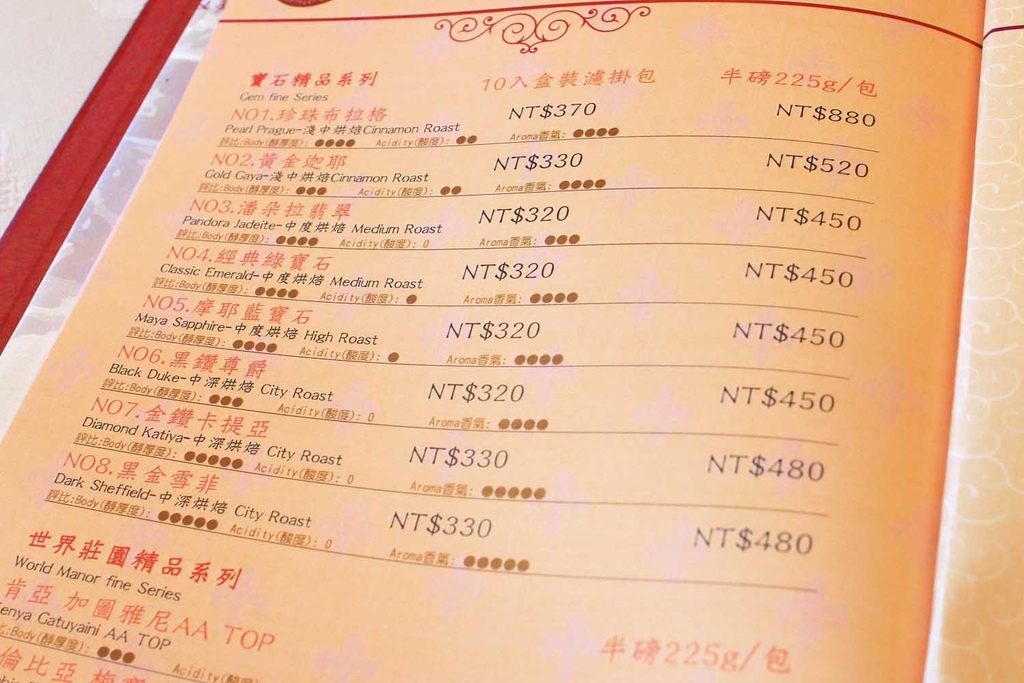 寶石精品系列 10入盒裝濾掛包 半磅225g/包
Gem fine Series
NO1.珍珠布拉格 NT$370 NT$880
Pearl Prague-淺中烘焙Cinnamon Roast
評比:Body(醇厚度): ●●●● Acidity(酸度): ●● Aroma香氣: ●●●●
NO2.黃金迦耶 NT$330 NT$520
Gold Gaya-淺中烘焙Cinnamon Roast
評比:Body(醇厚度): ●●● Acidity(酸度): ●● Aroma香氣: ●●●●
NO3.潘朵拉翡翠 NT$320 NT$450
Pandora Jadeite-中度烘焙 Medium Roast
評比:Body(醇厚度): ●●●● Acidity(酸度): 0 Aroma香氣: ●●●
NO4.經典綠寶石 NT$320 NT$450
Classic Emerald-中度烘焙 Medium Roast
評比:Body(醇厚度): ●●●● Acidity(酸度): ● Aroma香氣: ●●●●
NO5.摩耶藍寶石 NT$320 NT$450
Maya Sapphire-中度烘焙 High Roast
評比:Body(醇厚度): ●●●● Acidity(酸度): ● Aroma香氣: ●●●●
NO6.黑鑽尊爵 NT$320 NT$450
Black Duke-中深烘焙 City Roast
評比:Body(醇厚度): ●●● Acidity(酸度): 0 Aroma香氣: ●●●●
NO7.金鑽卡提亞 NT$330 NT$480
Diamond Katiya-中深烘焙 City Roast
評比:Body(醇厚度): ●●●●● Acidity(酸度): 0 Aroma香氣: ●●●●●
NO8.黑金雪非 NT$330 NT$480
Dark Sheffield-中深烘焙 City Roast
評比:Body(醇厚度): ●●●●● Acidity(酸度): 0 Aroma香氣: ●●●●●
世界莊園精品系列
World Manor fine Series
肯亞 加圖雅尼AA TOP 半磅225g/包
enya Gatuyaini AA TOP
比:Body(醇厚度): ●●● Acidity(酸度)
倫比亞